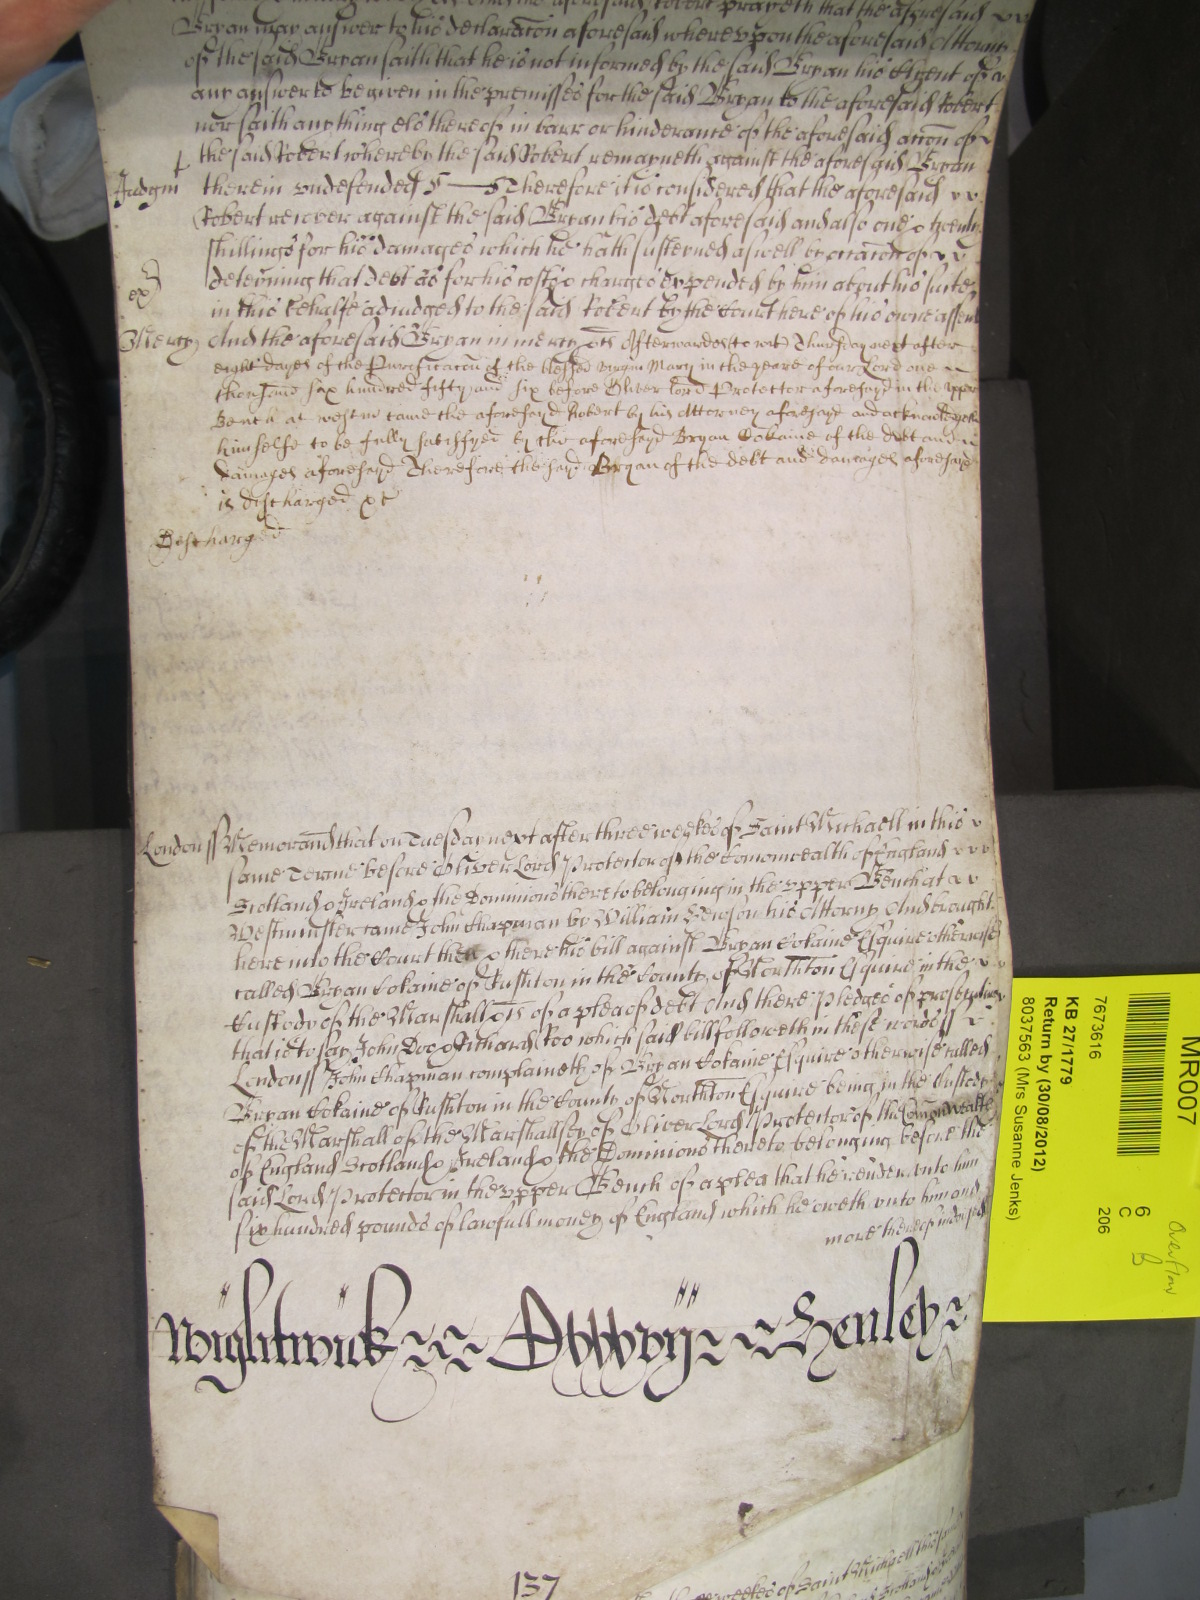 the aforesaid Robert prayeth that the aforesaid
Bryan may answer to his declaracon aforesaid whereupon the aforesaid Attorny
of the said Bryan saith that he is not informed by the said Bryan his Clyent of
any answere to be given in the premisses for the said Bryan to the aforesaid Robert
nor saith any thing els thereof in barr or hinderance of the aforesaid accon of
the said Robert whereby the said Robert remayneth against the aforesaid Bryan
Judgmt therein undefended Therefore it is considered that the aforesaid
Robert recover against the said Bryan his debt aforesaid and also one & twenty
shillings for his damages which he hath susteyned aswell by occacon of
deteyning that debt as for his costs & charges expended by him about his suite
in this behalfe adiudged to the said Robert by the Court here of his owne assent
Mercy And the aforesaid Bryan in mercy &c Afterwards to wit Thursday next after
eight dayes of the Purificacon of the blessed virgin Mary in the yeare of our Lord one
thousand six hundred fifty and six before Oliver Lord Protector aforesayd in the upper
Bench at westmr came the aforesayd Robert by his Attorney aforesayd and acknowledgeth
himselfe to be fully sattisfyed by the aforesayd Bryan Cokaine of the debt and
damages aforesayd Therefore the sayd Bryan of the debt and damages aforesayd
is discharged &c
Discharged
London ss Memorand that on Tuesday next after three weekes of Saint Michaell in this
same Terme before Oliver Lord Protector of the Comonwealth of England
Scotland & Ireland & the Dominions thereto belonging in the upper Bench at
Westminster came John Chapman by William his Attorny And brought
here into the Court then & there his bill against Bryan Cokaine Esquire otherwise
called Bryan Cokaine of Rushton in the County of Northton Esquire in the
Custody of the Marshall &c of a plea of debt And there Pledges of prosecution
that is to say John Doo & Richard Roo which said bill followeth in these words ss
London ss John Chapman complaineth of Bryan Cokaine Esquire otherwise called
Bryan Cokaine of Rushton in the County of Northton Esquire being in the Custody
of the Marshall of the Marshallsey of Oliver Lord Protector of the Comonwealth
of England Scotland & Ireland & the Dominions thereto belonging before the
said Lord Protector in the upper Bench of a plea that he render unto him
six hundred pounds of lawfull money of England which he oweth unto him and
more thereof
Wightwick Henley
137
weekes of Saint Michaell this
MR007
206
6
C
Overflow
7673616
KB 27/1779
Return by (30/08/2012)
8037563 (Mrs Susanne Jenks)